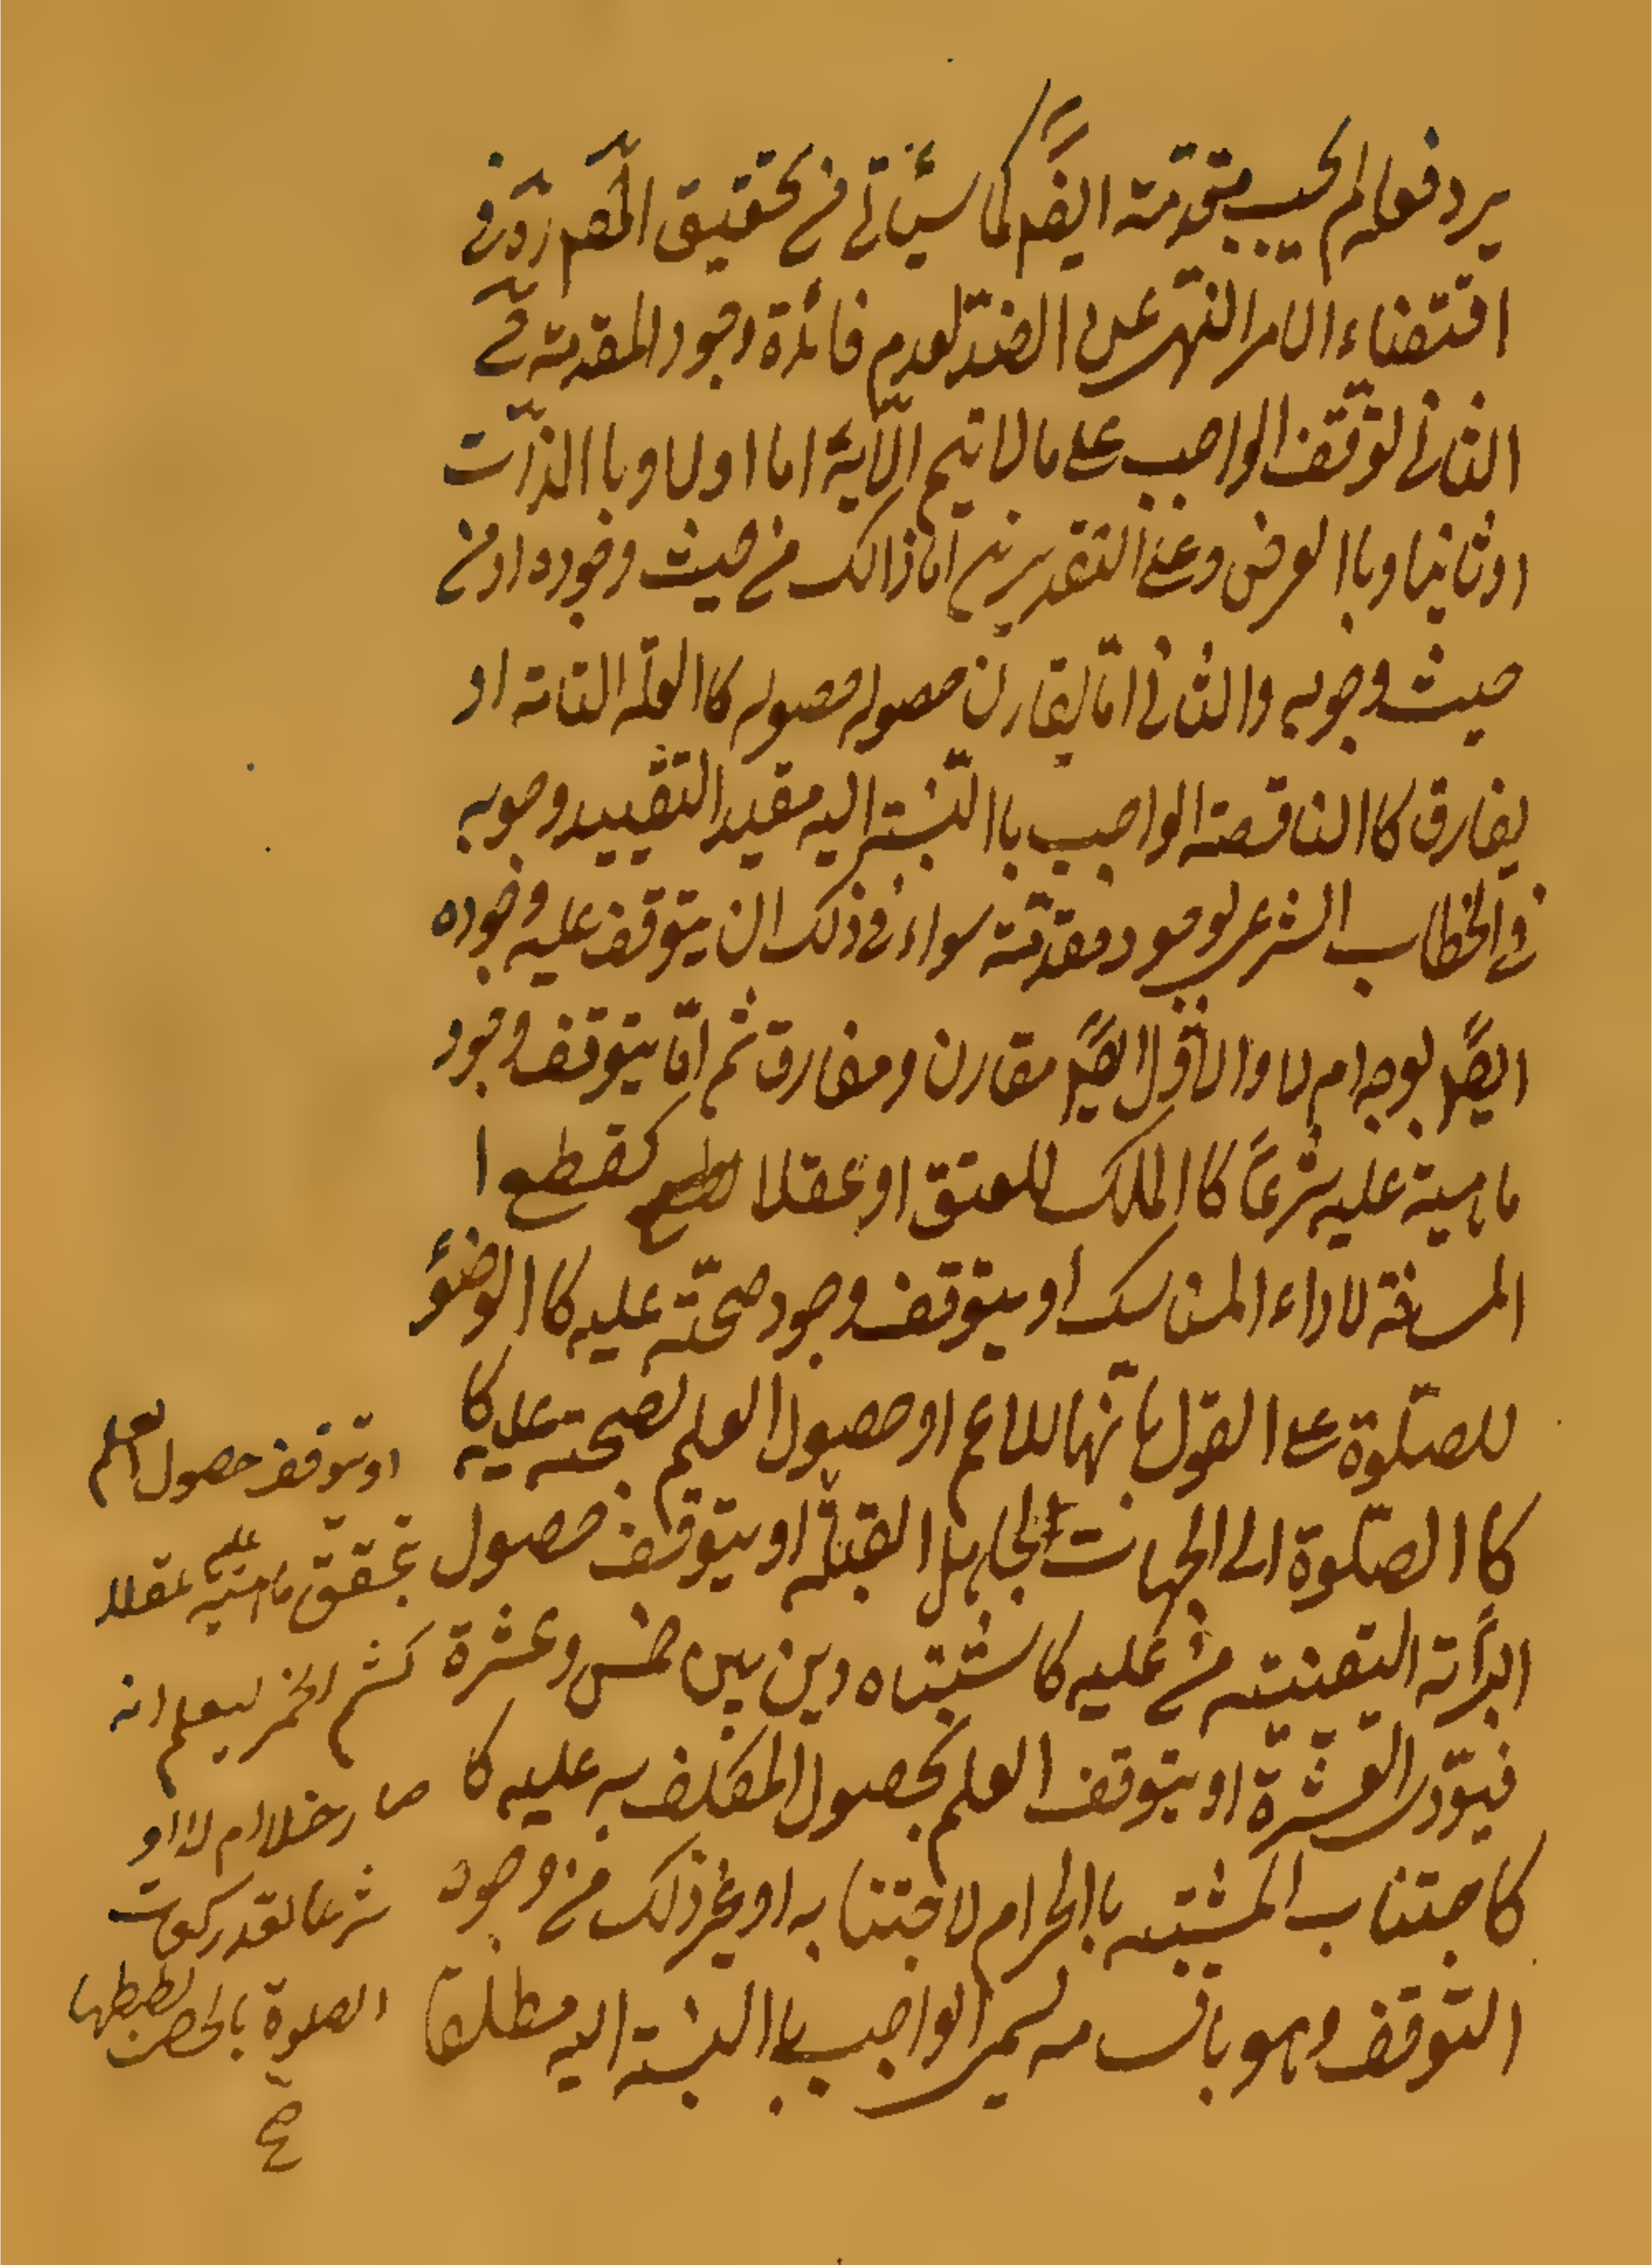 يرد فعالم يجب مقدمته ايضً كما سيأتي في تحقيق المقصد رد في
اقتضاء الامر النهى عن الضد لعدم فائدة وجود المقدمة ح
الثاني توقف الواجب على ما لا يتم الا به اما اولا وباالذات
اوثانيا وباالعرض وعلى التقديرين اما ذالك من حيث وجوده او من
حيث وجوبه والثاني اما يقارن حصوله حصوله كاالعلة التامة او
يفارق كاالناقصة الواجب باالنسبة اليه مقيد التقييد وجوبه
في الخطاب الشرعى بوجود مقدمته سواء في ذلك ان يتوقف عليه وجوده
ايضً بوجه ام لا والاول ايضً مقارن ومفارق ثم اما يتوقف وجود
ماهيته عليه شرعًا كاالملك للعتق او عقلا كقطع ا
المسافة لاداء المناسك او يتوقف وجود صحته عليه كاالوضوء
للصلوة على القول بانها للاعم او حصول العلم لصحته عليه كا
كاالصلوة الى الجهات لجاهل القبلة او يتوقف حصول
البرائة اليقينية من عليه كاشتباه دين بين خمس وعشرة
فيؤدى العشرة او يتوقف العلم بحصول المكلف به عليه كا
كاجتناب المشتبه باالحرام لاجتنابه او غير ذلك من وجوه
التوقف وهو باقسامه يسمى الواجب باالنسبة اليه مطلقا
او يتوقف حصول العلم
بتحقق ماهيته عليه عقلا
كشم الخمر ليعلم انه
صار خلا ام لا او
شرعا لقدر ركعات
الصلوة بالحصى لضبطها
صح